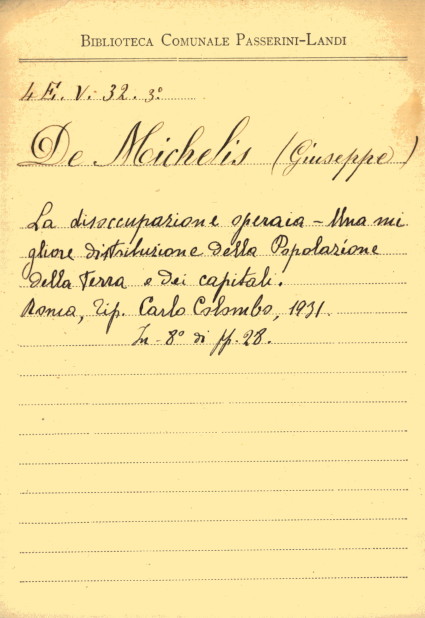 BIBLIOTECA COMUNALE PASSERINI-LANDI
4 E. V. 32. 3º
De Michelis (Giuseppe)
La disoccupazione operaia – Una mi
gliore distribuzione della Popolazione
della Terra e dei capitali.
Roma, Tip. Carlo Colombo, 1931.
In-8º di pp. 28.